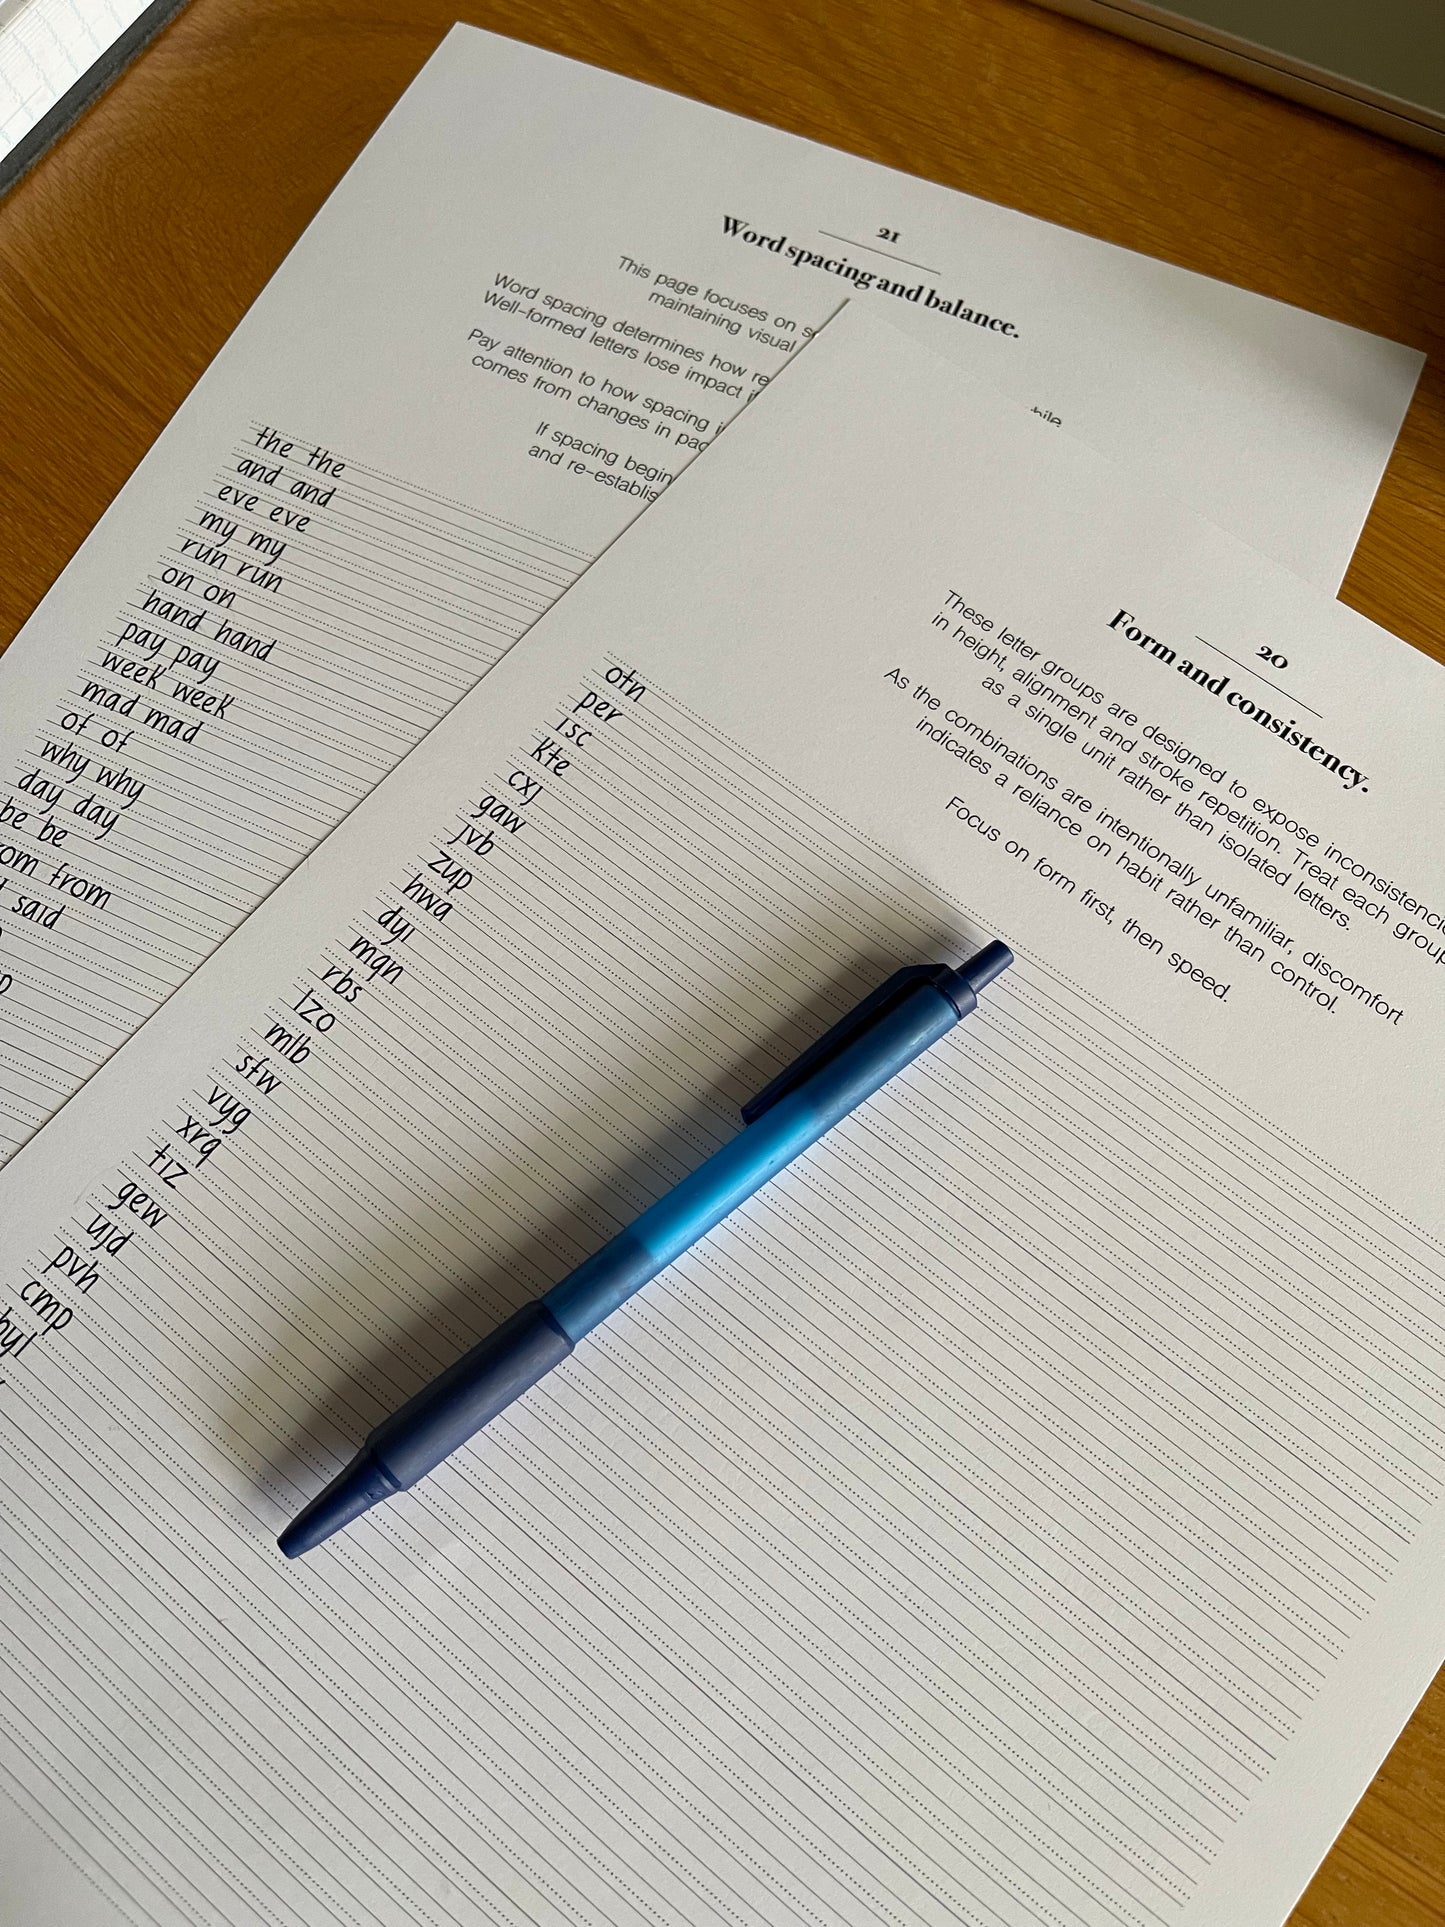 21
Word spacing and balance.
This page focuses on
maintaining visual
Word spacing determines how
Well-formed letters lose impact
Pay attention to how spacing
comes from changes in
If spacing
and
the the
and and
eve eve
my my
run run
on on
hand hand
pay pay
week week
mad mad
of of
why why
day day
be be
from
said
20
Form and consistency.
These letter groups are designed to expose
in height, alignment and stroke repetition. Treat each group
as a single unit rather than isolated letters.
As the combinations are intentionally unfamiliar, discomfort
indicates a reliance on habit rather than control.
Focus on form first, then speed.
otn
per
isc
kte
cxj
gaw
jvb
zup
hwa
dyi
mqn
rbs
lzo
mlb
sfw
vyg
xrq
tiz
gew
ujd
pvh
cmp